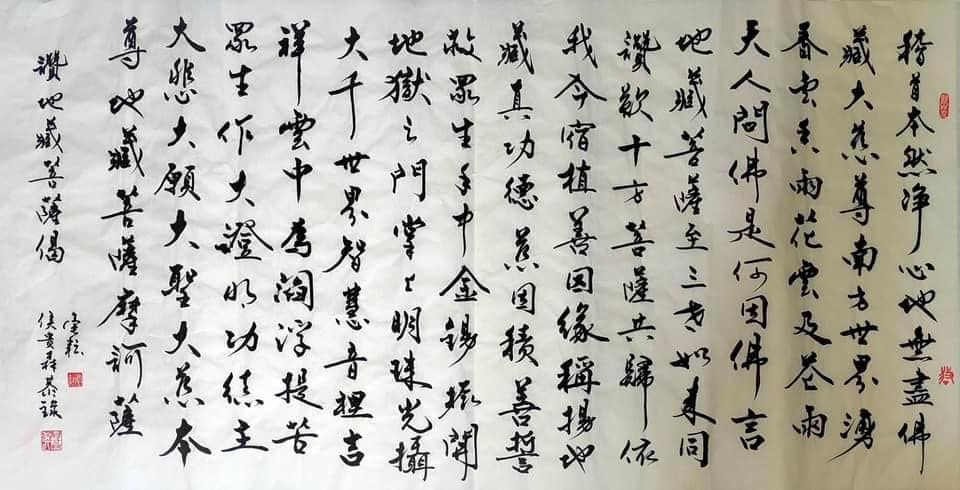 稽首本然淨心地無盡佛
藏大慈尊南方世界湧
香雲香雨花雲及花雨
天人問佛是何因佛言
地藏菩薩至三世如来同
讚歎十方菩薩共歸依
我今宿植善因緣稱揚地
藏真功德慈因積善誓
救眾生手中金錫振開
地獄之門掌上明珠光攝
大千世界智慧音裡吉
祥雲中為閻浮提苦
眾生作大澄明功德主
大悲大願大聖大慈本
尊地藏菩薩摩訶薩
讚地藏菩薩偈
侯貴森恭錄